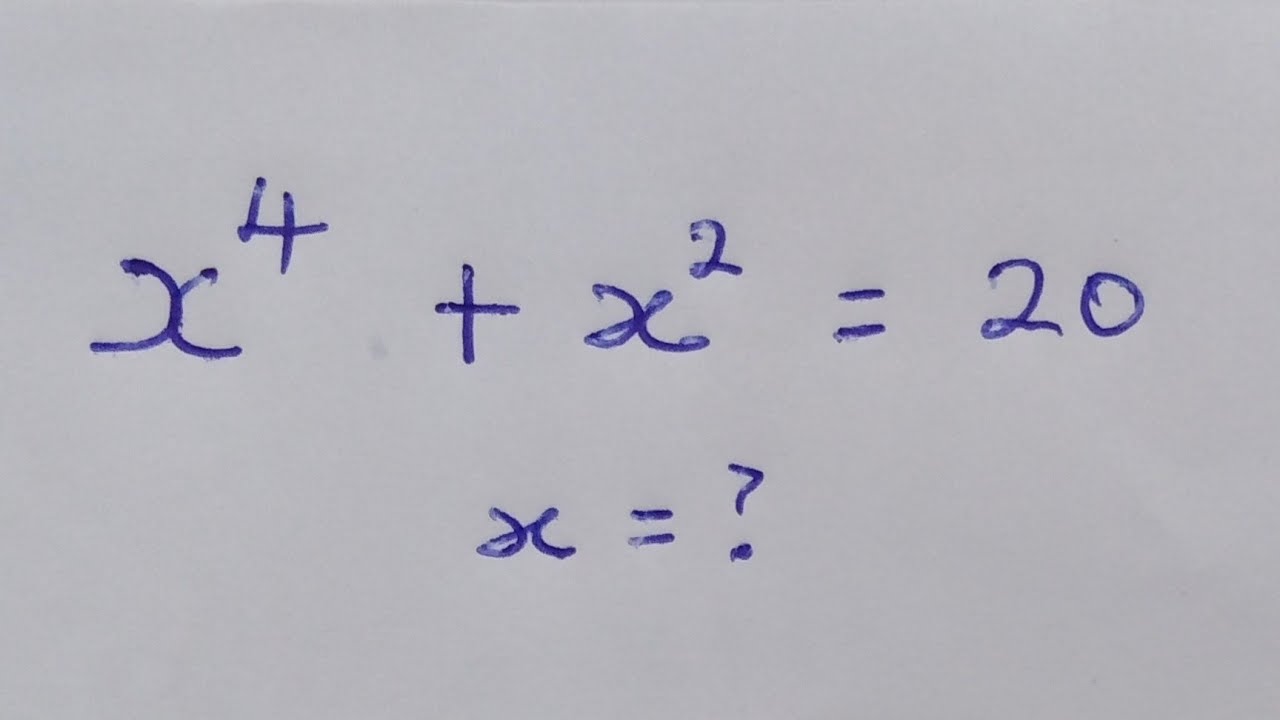 x⁴ + x² = 20
x = ?